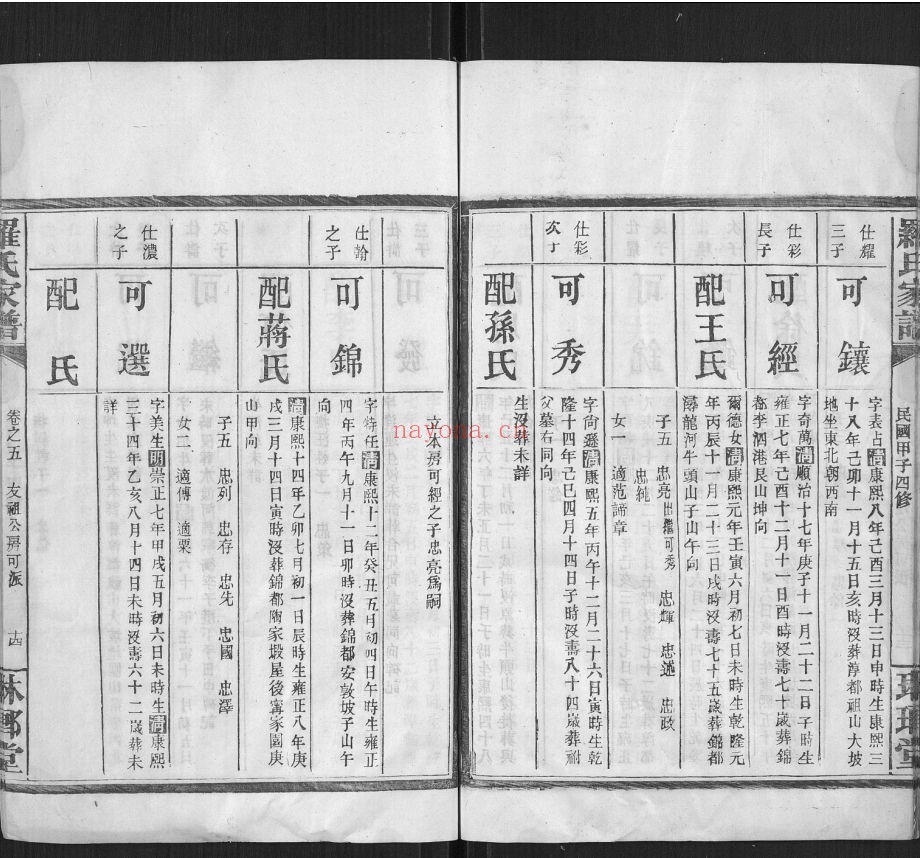 羅氏家譜
民國甲子四修
琅琊堂
仕耀
三子
可鑲
字表占清康熙八年己酉三月十三日申時生康熙三
十八年己卯十一月十五日亥時沒葬淳都祖山大坡
地坐東北朝西南
仕彩
長子
可經
字奇萬清順治十七年庚子十一月二十二日子時生
雍正七年己酉十二月十一日酉時沒壽七十歲葬錦
都李泗港艮山坤向
配王氏
爾德女清康熙元年壬寅六月初七日未時生乾隆元
年丙辰十一月二十三日戌時沒壽七十五歲葬錦都
龍河牛頭山子山午向
子五 忠亮出繼可秀 忠輝 忠述 忠政
忠純
女一 適范諦章
仕彩
次子
可秀
字尙遜清康熙五年丙午十二月二十六日寅時生乾
隆十四年己巳四月十四日子時沒壽八十四歲葬祔
父墓右同向
配孫氏
生沒葬未詳
立本房可經之子忠亮爲嗣
仕翰
之子
可錦
字特任清康熙十二年癸丑五月初四日午時生雍正
四年丙午九月十一日卯時沒葬錦都安敦坡子山午
向
配蔣氏
清康熙十四年乙卯七月初一日辰時生雍正八年庚
戌三月十四日寅時沒葬錦都陶家塅屋後甯家園庚
山甲向
子五 忠列 忠存 忠先 忠國 忠澤
女二 適傅 適粟
仕濃
之子
可選
字美生明崇正七年甲戌五月初六日未時生清康熙
三十四年乙亥八月十四日未時沒壽六十二歲葬未
詳
配 氏
羅氏家譜
卷之五 友祖公房可派 十四
琅琊堂
nayona.cn